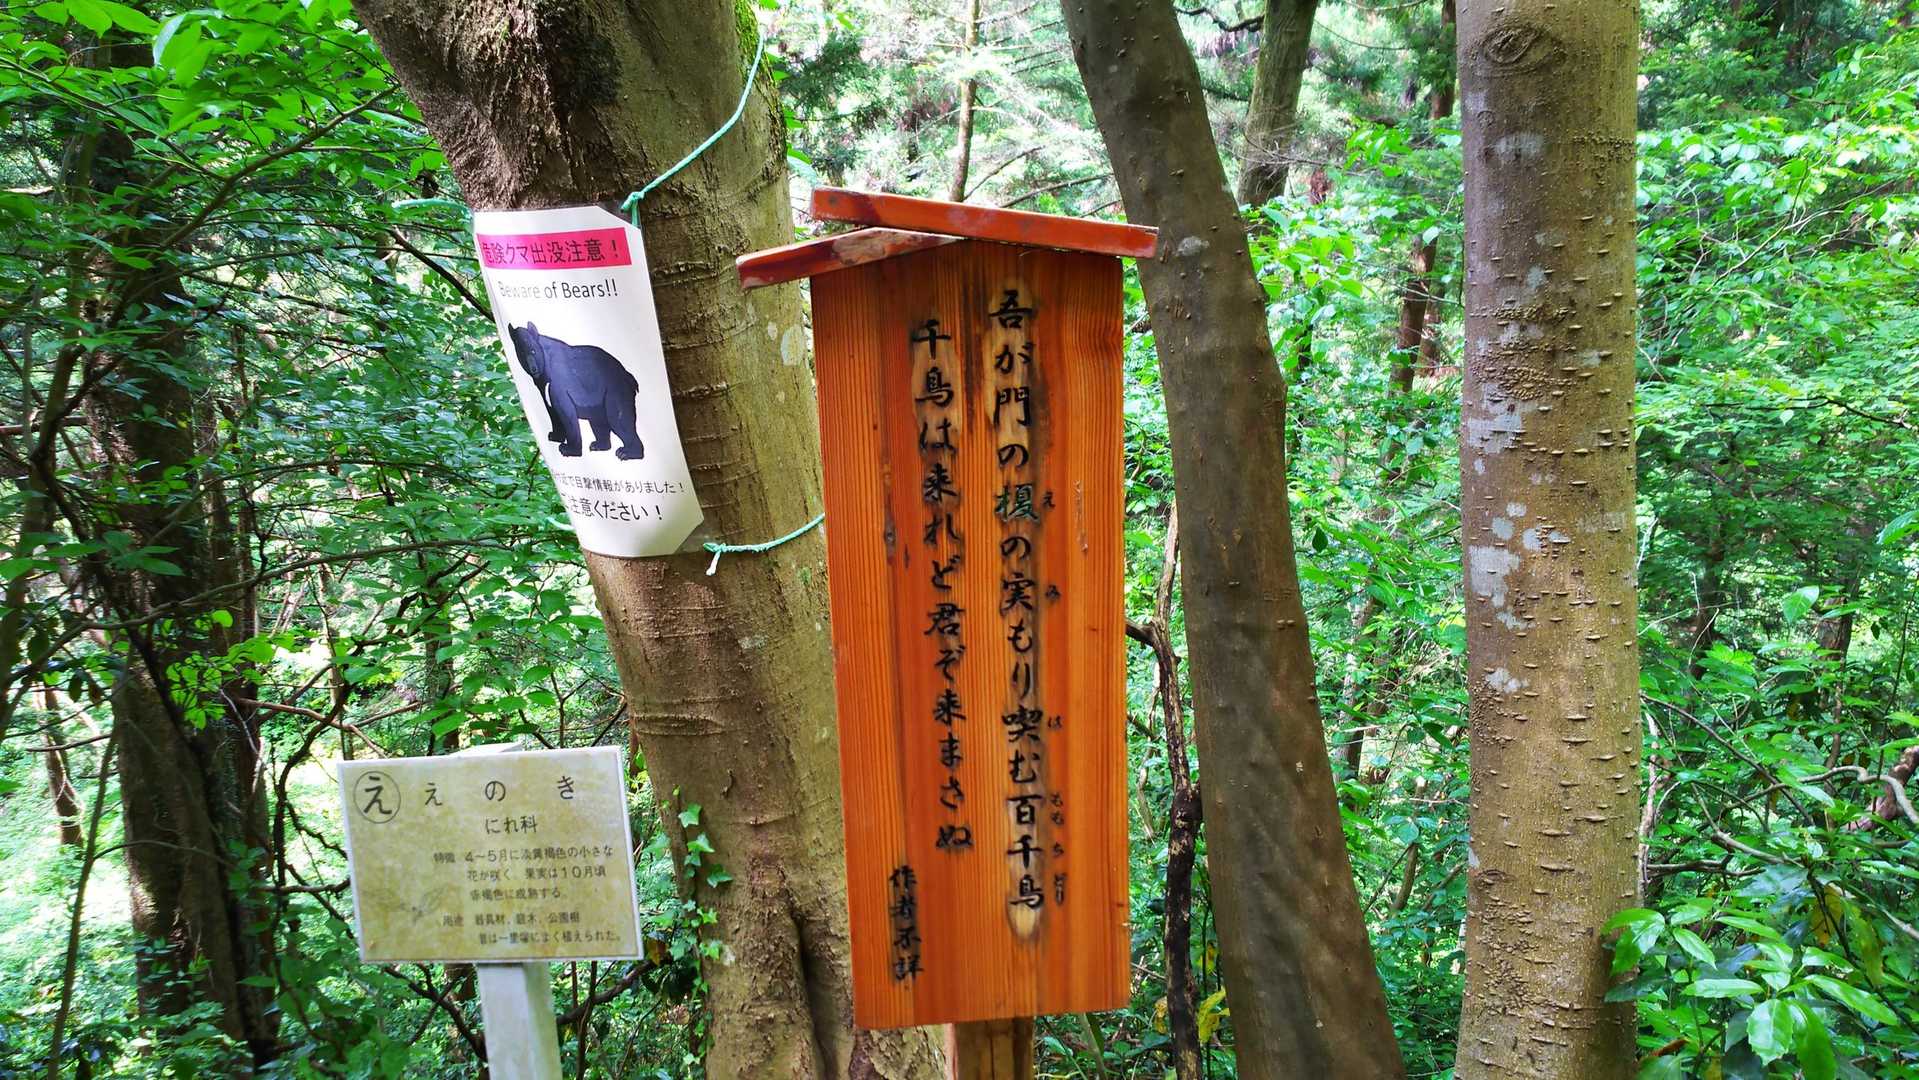 危険クマ出没注意！
Beware of Bears!!
で目撃情報がありました！
注意ください！
吾が門の榎の実もり喫む百千鳥
え
み
は
ももちどり
千鳥は来れど君ぞ来まさぬ
作者不詳
え えのき
にれ科
特徴 4～5月に淡黄褐色の小さな
花が咲く、果実は10月頃
赤褐色に成熟する。
用途 器具材、庭木、公園樹
昔は一里塚によく植えられた。